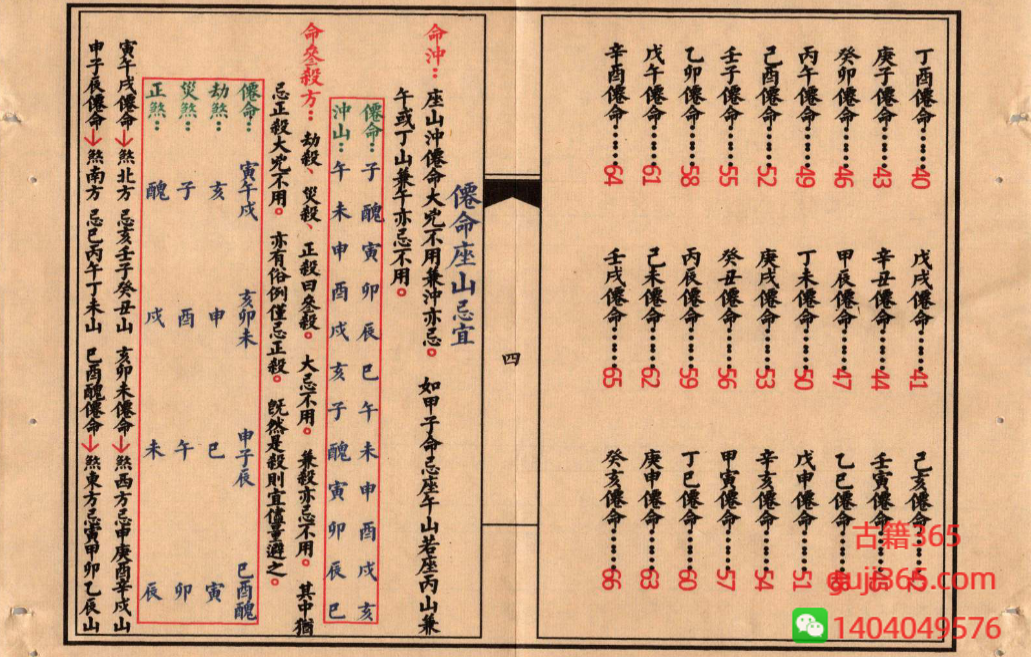 丁酉僊命……40 戊戌僊命……41 己亥僊命……
庚子僊命……43 辛丑僊命……44 壬寅僊命……
癸卯僊命……46 甲辰僊命……47 乙巳僊命……
丙午僊命……49 丁未僊命……50 戊申僊命……51
己酉僊命……52 庚戌僊命……53 辛亥僊命……54
壬子僊命……55 癸丑僊命……56 甲寅僊命……57
乙卯僊命……58 丙辰僊命……59 丁巳僊命……60
戊午僊命……61 己未僊命……62 庚申僊命……63
辛酉僊命……64 壬戌僊命……65 癸亥僊命……66
四
僊命座山忌宜
命沖：座山沖僊命大兇不用兼沖亦忌。如甲子命忌座午山若座丙山兼
午或丁山兼午亦忌不用。
僊命：子醜寅卯辰巳午未申酉戌亥
沖山：午未申酉戌亥子醜寅卯辰巳
命叄殺方：劫殺、災殺、正殺曰叄殺。大忌不用。兼殺亦忌不用。其中猶
忌正殺大兇不用。亦有俗例僅忌正殺。既然是殺則宜儘量避之。
僊命：寅午戌 亥卯未 申子辰 巳酉醜
劫煞：亥 申 巳 寅
災煞：子 酉 午 卯
正煞：醜 戌 未 辰
寅午戌僊命→煞北方 忌亥壬子癸丑山 亥卯未僊命→煞西方忌申庚酉辛戌山
申子辰僊命→煞南方 忌巳丙午丁未山 巳酉醜僊命→煞東方忌寅甲卯乙辰山
古籍365
guji365.com
1404049576